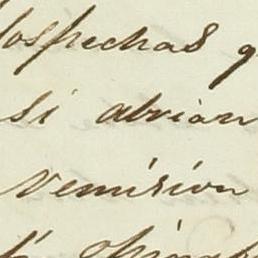 sospechas q
si abrian
remision